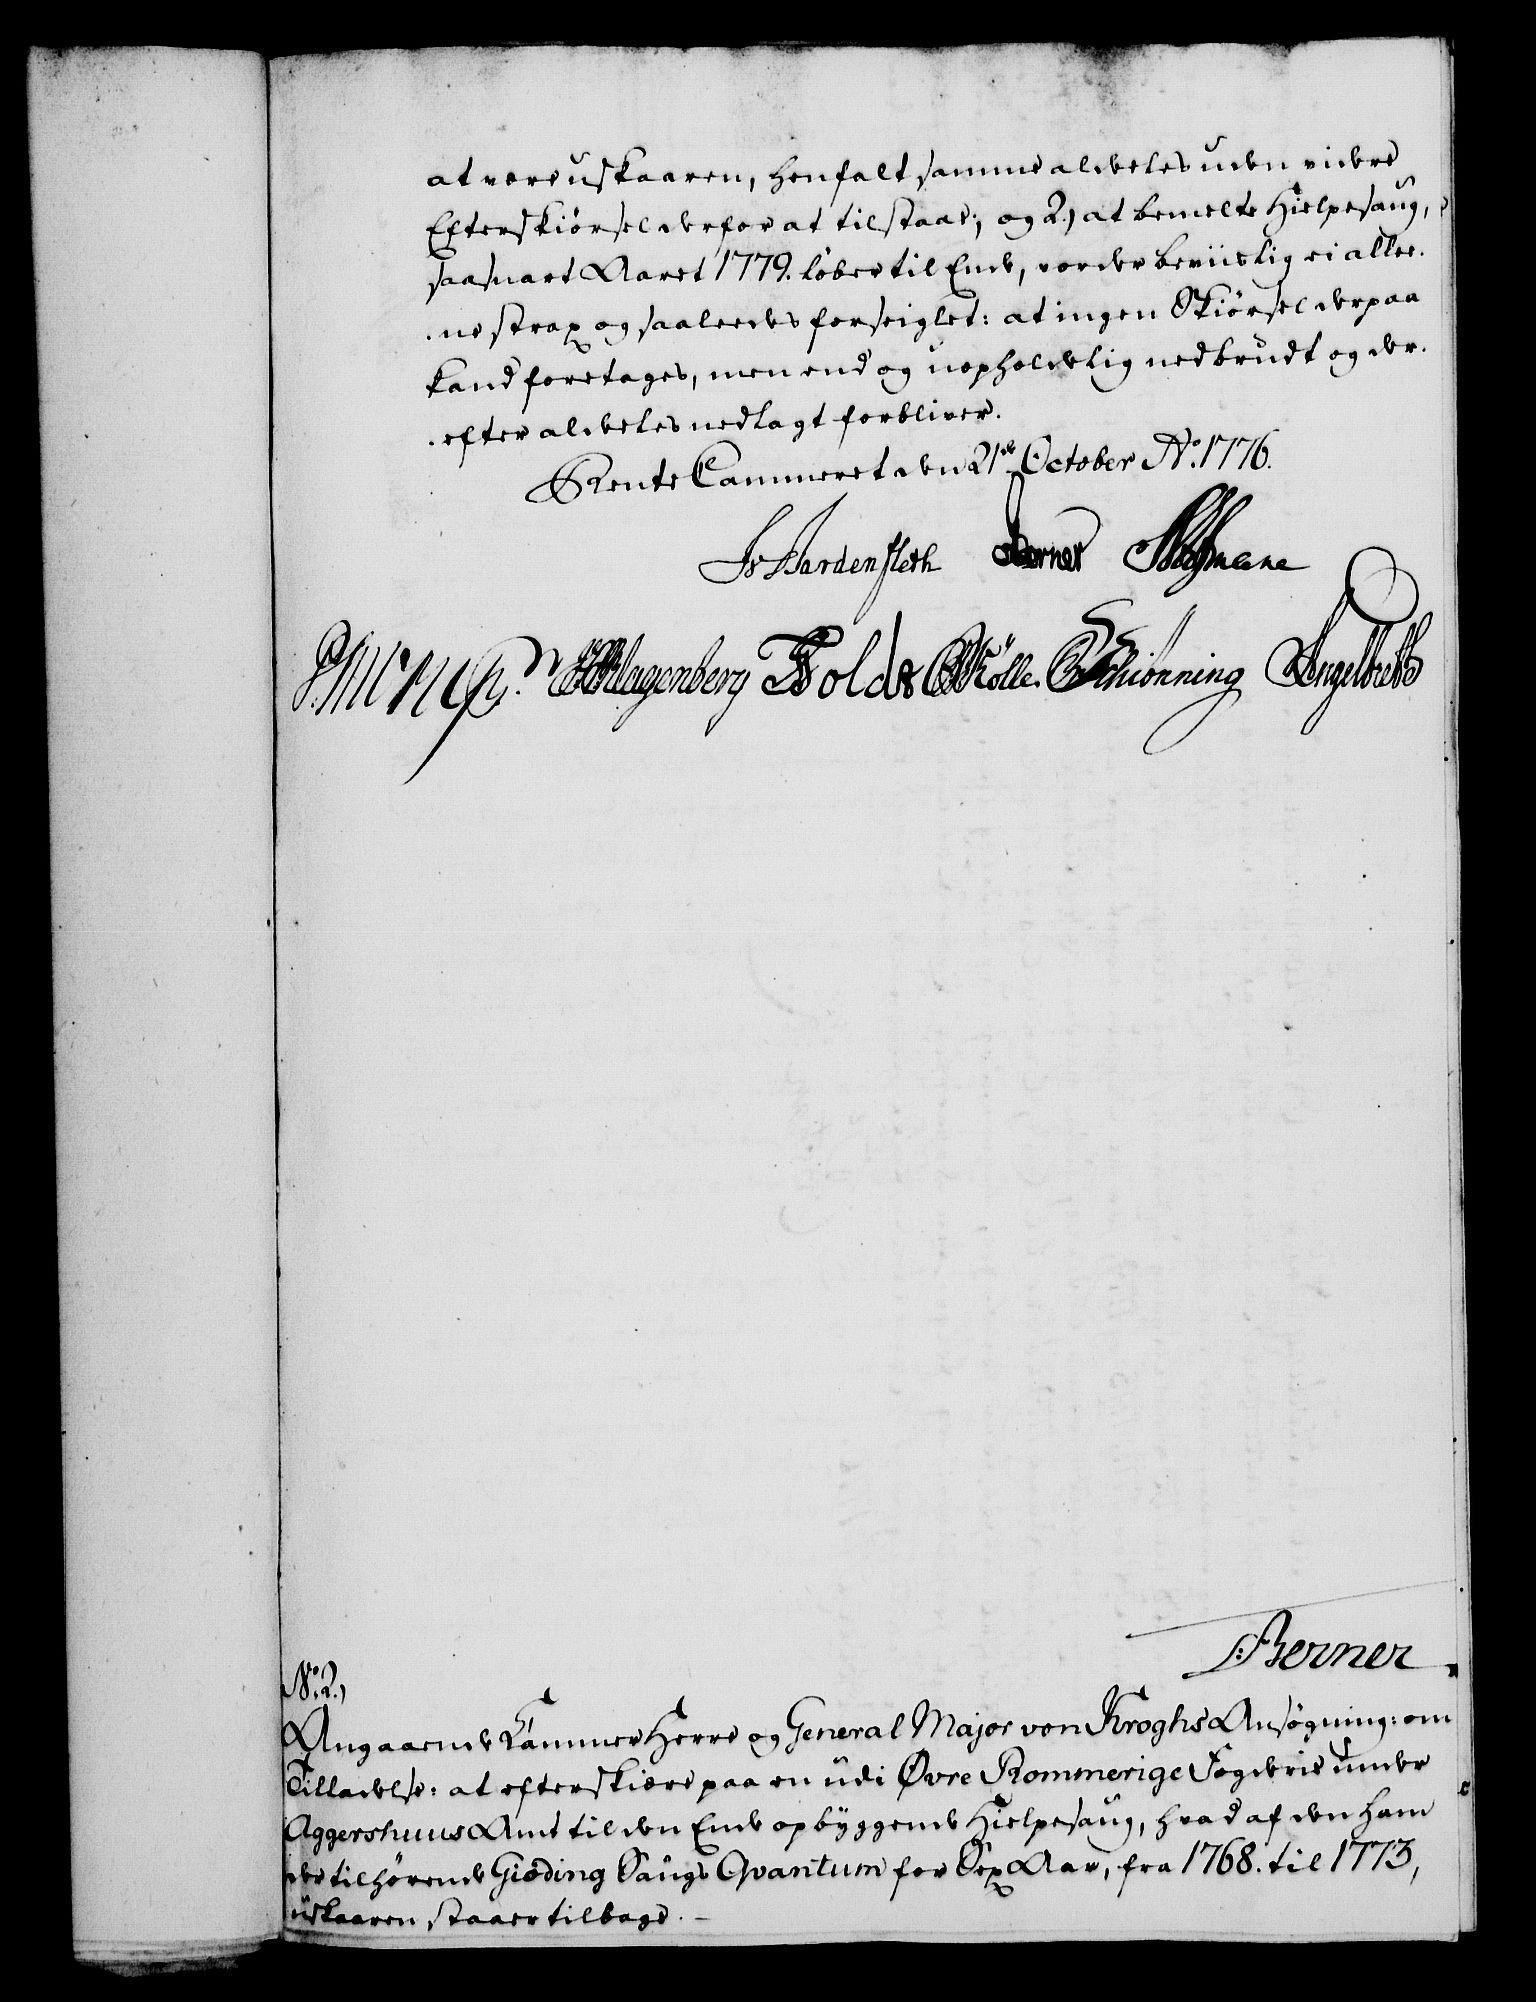 at være uskaaren, henfalt samme aldeles uden videre
Efterskiørsel derfor at tilstaae; og 2.) at bemelte Hielpesaug,
saasnart Aaret 1779. løber til Ende, vorder beviislig ei allee-
-ne strax og saaleedes forseiglet: at ingen Skiørsel derpaa
kand foretages, men end og uopholdelig nedbrudt og der-
-efter aldeles nedlagt forbliver.
Rente Cammeret den 21de October Ao. 1776.
Vardenfleth Berner
Klagenberg Holdt Rølle. Schiønning Engelbreth
Berner
No. 2.)
Angaaende Kammer Herre og General Major von Kroghs Ansøgning: om
Tilladelse: at efterskiære paa en udi Øvre Rommerige Fogderie under
Aggershuus Amt til den Ende opbyggende Hielpesaug, hvad af den ham
der tilhørende Giøding Saugs Qvantum for Sex Aar, fra 1768. til 1773,
uskaaren staaer tilbage. -